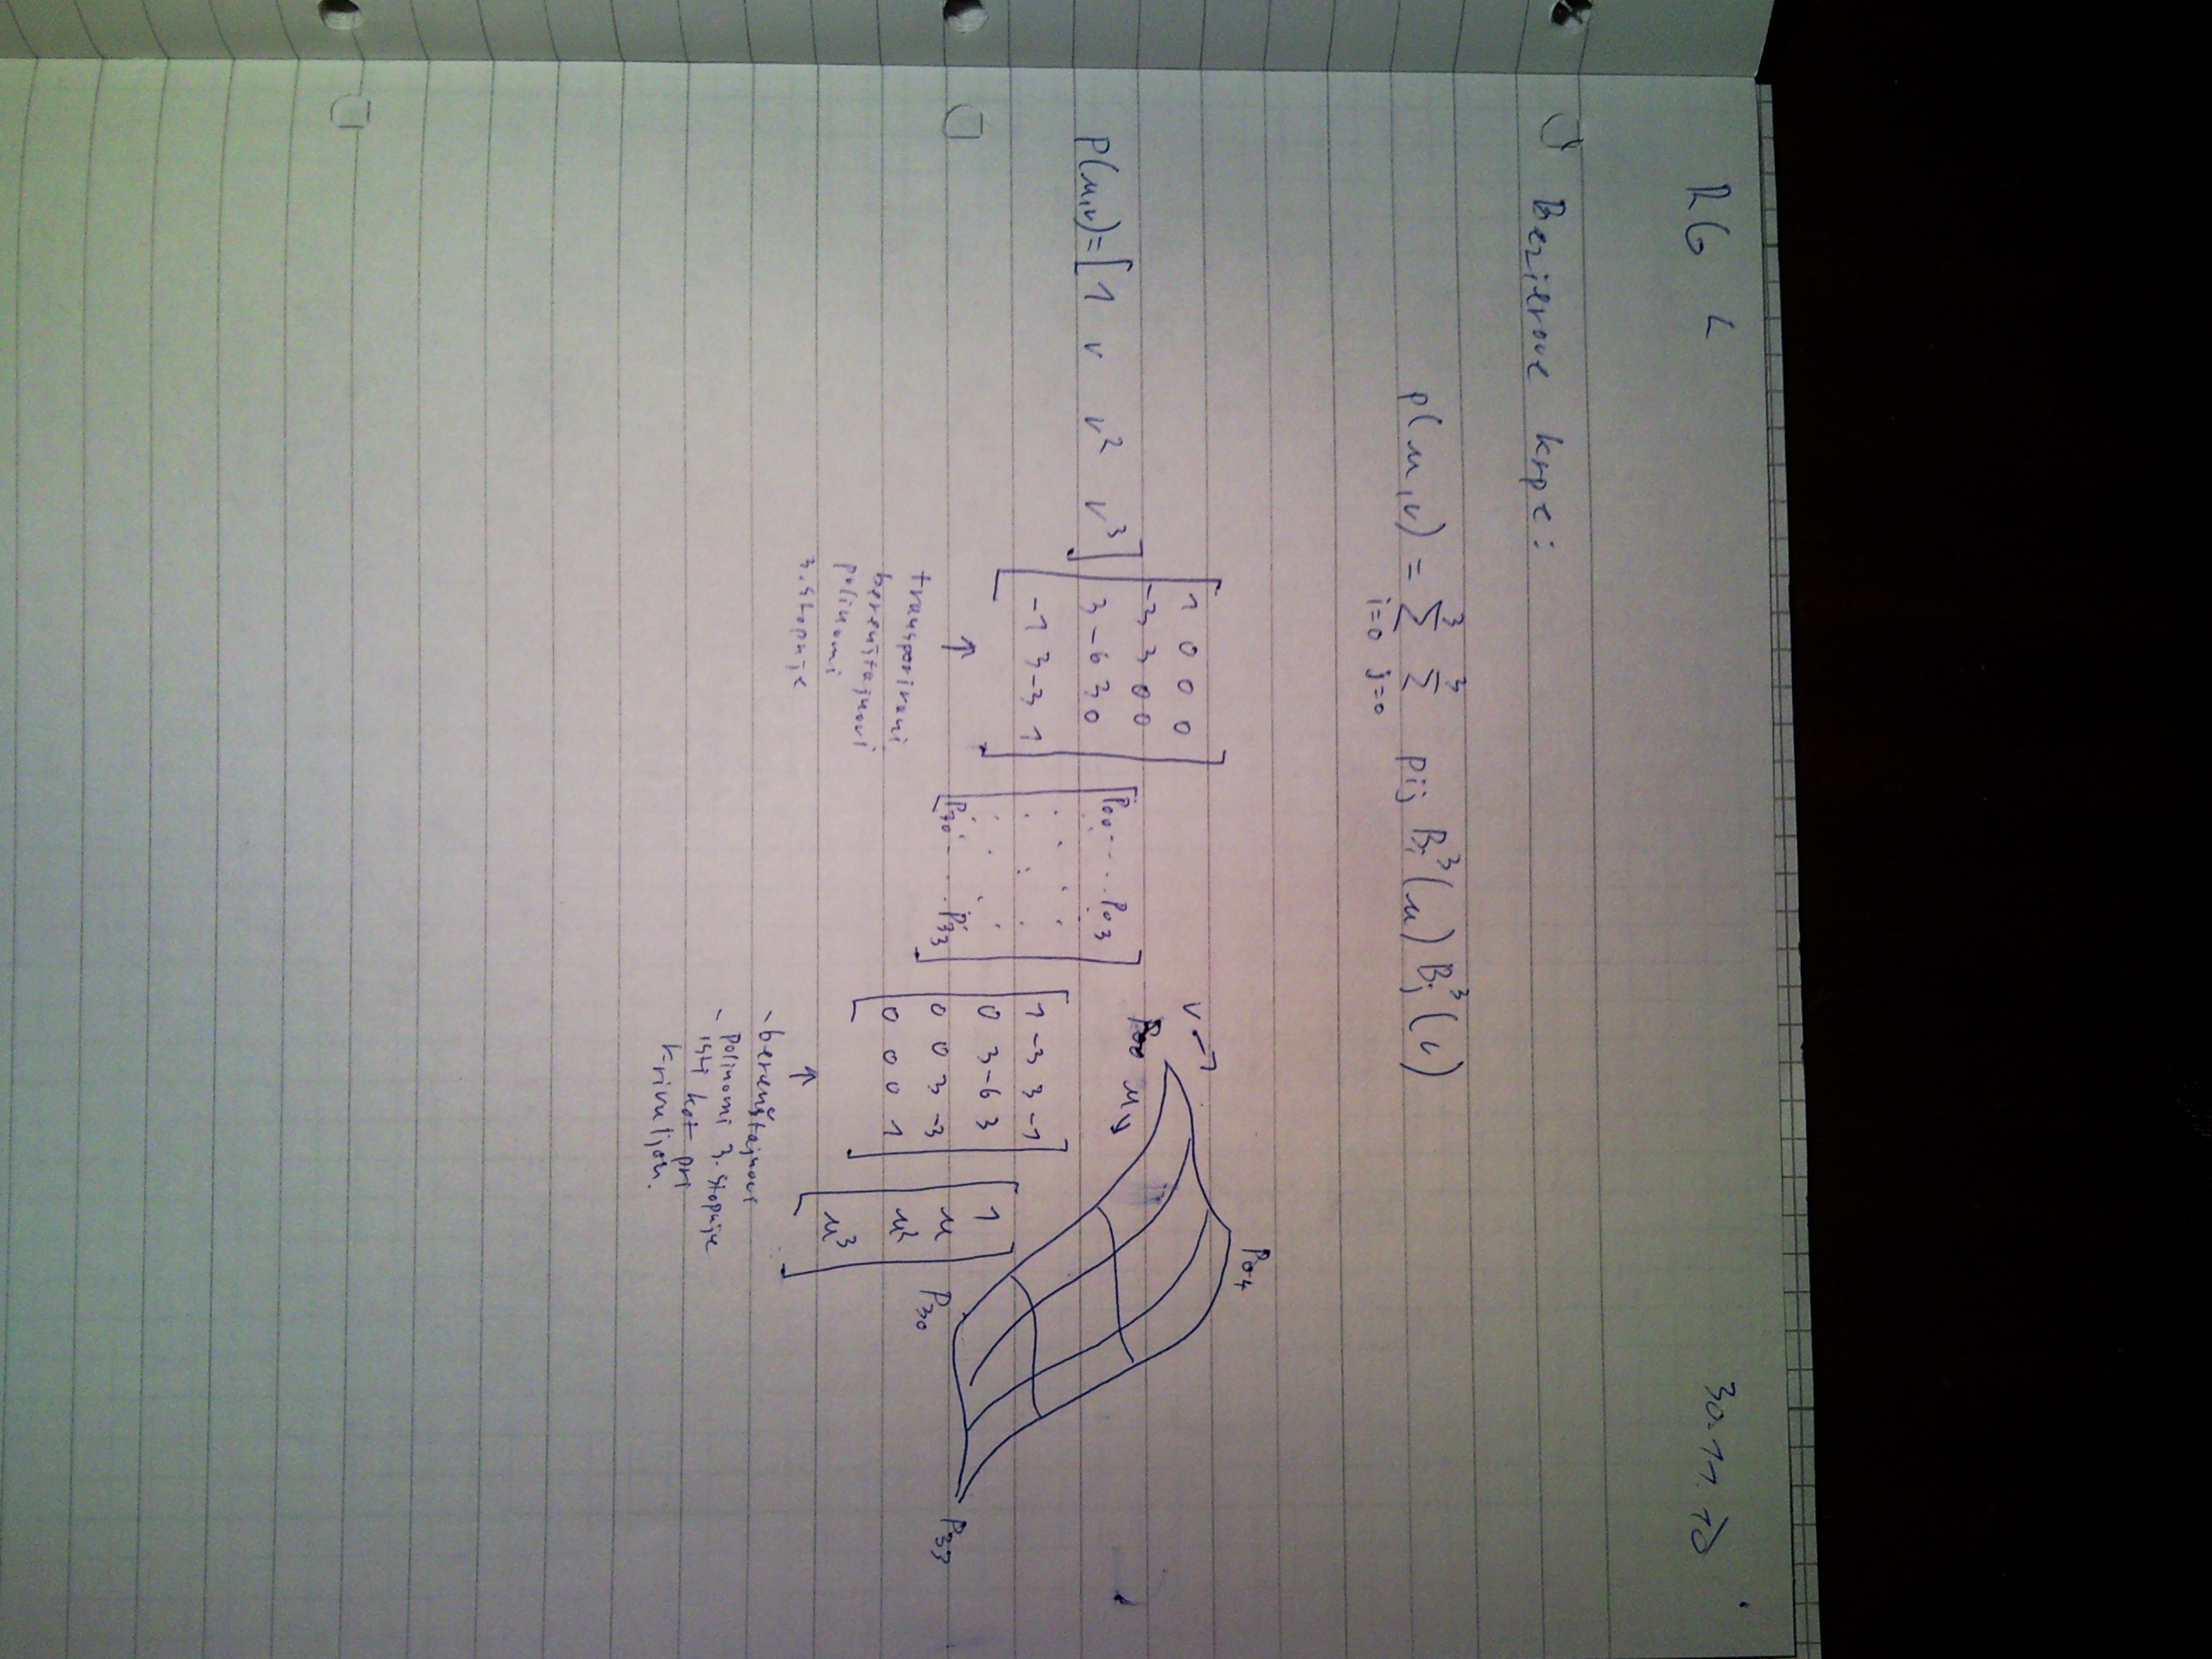 RG L 30.11.10
Bezierove krpe:
p(u,v) = ∑_{i=0}^{3} ∑_{j=0}^{3} pij Bi³(u) Bj³(v)
v→
P00 u↘
P04
P(u,v) = [1 v v² v³]
[1 0 0 0
-3 3 0 0
3 -6 3 0
-1 3 -3 1]
[P00 . . . P03
. . . .
. . . .
P30 . . . P33]
[1 -3 3 -1
0 3 -6 3
0 0 3 -3
0 0 0 1]
[1
u
u²
u³]
P30
P33
↑
transponirani
berenštajnovi
polinomi
3. stopnje
↑
- berenštajnovi
- polinomi 3. stopnje
isti kot pri
krivuljah.